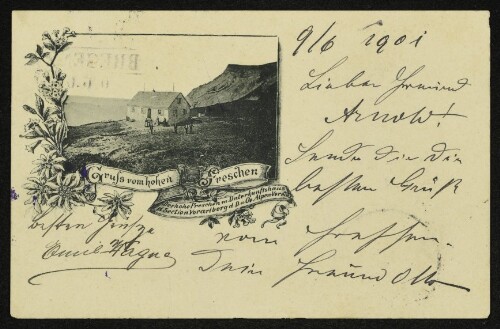 9/6 1901
Lieber Freund
Arnold!
Sende dir die
besten Grüße
vom Freschen.
Dein Freund Otto
Gruss vom hohen Freschen
Der hohe Freschen m. Unterkunftshaus
d. Section Vorarlberg d. D. u. Oe. Alpen-Ver.
besten Grüße
Emil Wagner